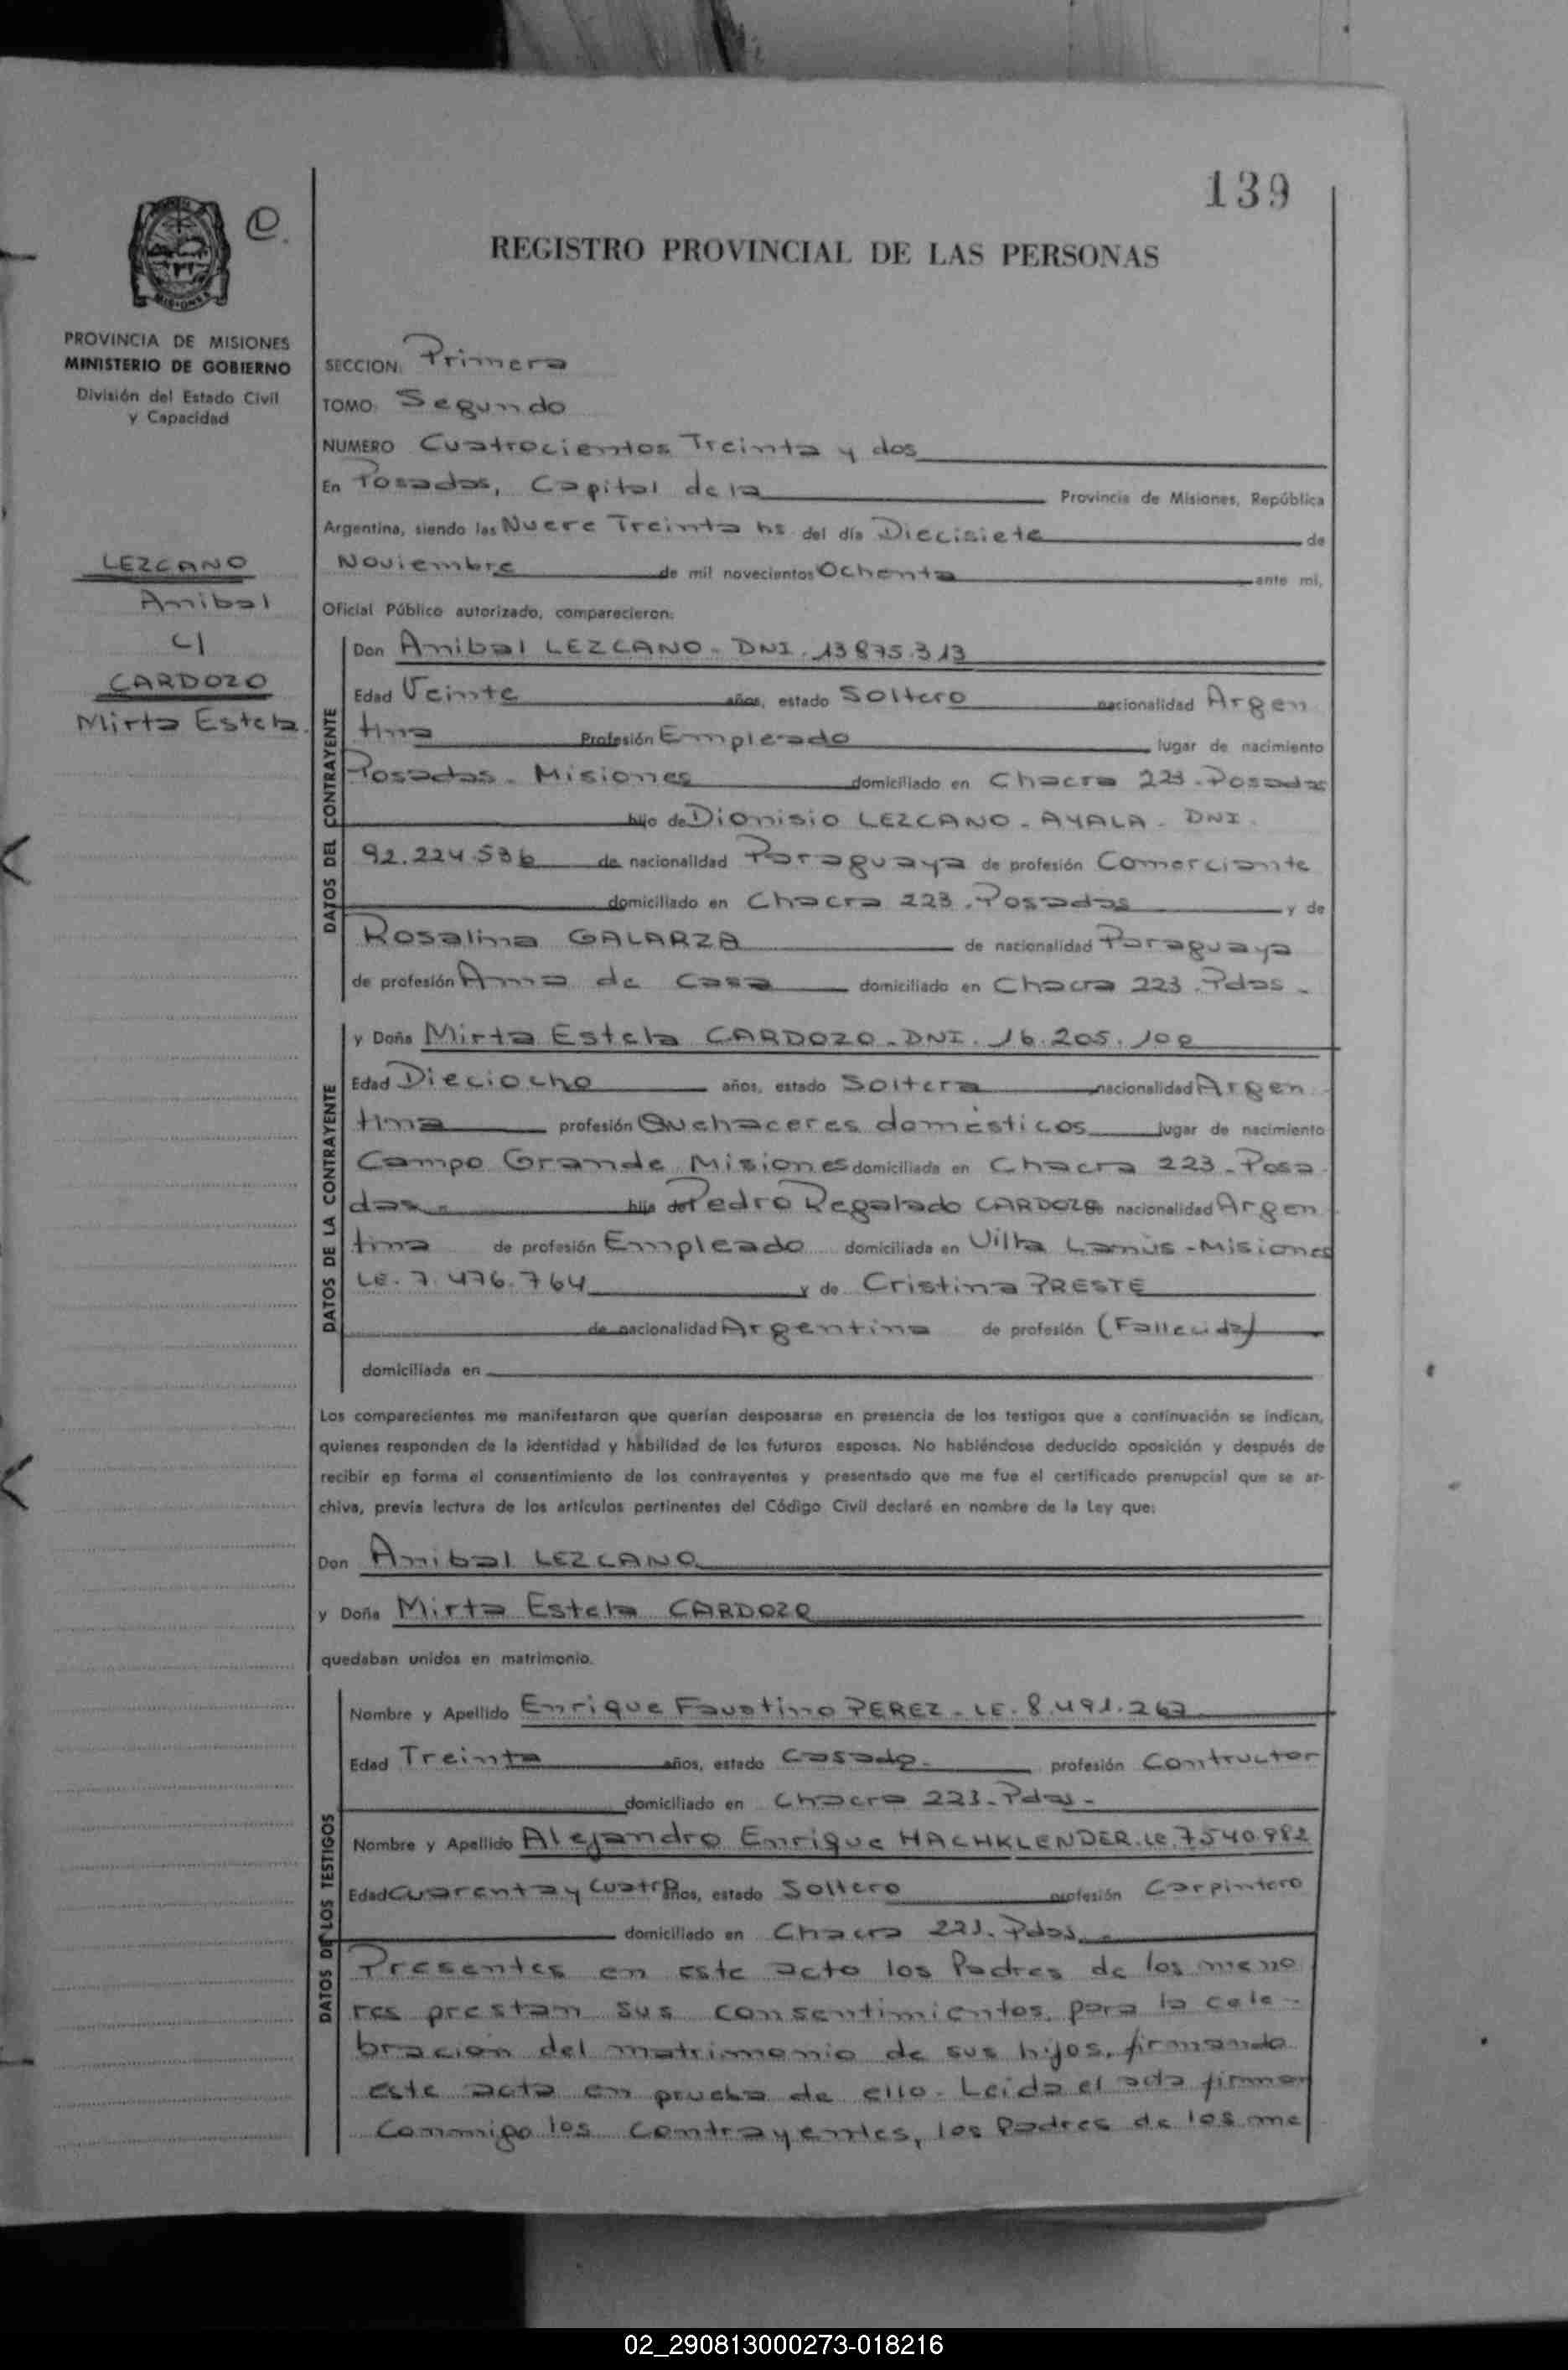 139
REGISTRO PROVINCIAL DE LAS PERSONAS
MISIONES
PROVINCIA DE MISIONES
MINISTERIO DE GOBIERNO
División del Estado Civil
y Capacidad
LEZCANO
Anibal
c/
CARDOZO
Mirta Estela.
SECCION: Primera
TOMO: Segundo
NUMERO Cuatrocientos Treinta y dos
En Posadas, Capital de la Provincia de Misiones, República
Argentina, siendo las Nueve Treinta hs del día Diecisiete de
Noviembre de mil novecientos Ochenta ante mi,
Oficial Público autorizado, comparecieron:
DATOS DEL CONTRAYENTE
Don Anibal LEZCANO - DNI. 13875.313
Edad Veinte años, estado Soltero nacionalidad Argen
tina Profesión Empleado lugar de nacimiento
Posadas - Misiones domiciliado en Chacra 223 - Posadas
hijo de Dionisio LEZCANO - AYALA - DNI.
92.224.536 de nacionalidad Paraguaya de profesión Comerciante
domiciliado en Chacra 223. Posadas y de
Rosalina GALARZA de nacionalidad Paraguaya
de profesión Ama de casa domiciliado en Chacra 223. Pdas -
DATOS DE LA CONTRAYENTE
y Doña Mirta Estela CARDOZO - DNI. 16.205.108
Edad Dieciocho años, estado Soltera nacionalidad Argen
tina profesión Quehaceres domésticos lugar de nacimiento
Campo Grande Misiones domiciliada en Chacra 223 - Posa
das - hija de Pedro Regalado CARDOZO de nacionalidad Argen
tina de profesión Empleado domiciliada en Villa Lanús - Misiones
LE. 7.476.764 y de Cristina PRESTE
de nacionalidad Argentina de profesión (Fallecida)
domiciliada en
Los comparecientes me manifestaron que querían desposarse en presencia de los testigos que a continuación se indican,
quienes responden de la identidad y habilidad de los futuros esposos. No habiéndose deducido oposición y después de
recibir en forma el consentimiento de los contrayentes y presentado que me fue el certificado prenupcial que se ar-
chiva, previa lectura de los artículos pertinentes del Código Civil declaré en nombre de la Ley que:
Don Anibal LEZCANO
y Doña Mirta Estela CARDOZO
quedaban unidos en matrimonio.
DATOS DE LOS TESTIGOS
Nombre y Apellido Enrique Faustino PEREZ - LE. 8.491.267
Edad Treinta años, estado Casado - profesión Contructor
domiciliado en Chacra 223 - Pdas -
Nombre y Apellido Alejandro Enrique HACHKLENDER. LE. 7.540.982
Edad Cuarenta y Cuatro años, estado Soltero profesión Carpintero
domiciliado en Chacra 223. Pdas. -
Presentes en este acto los Padres de los meno
res prestan sus consentimientos, para la cele-
bración del matrimonio de sus hijos, firmando
este acta en prueba de ello - Leida el acta firman
conmigo los contrayentes, los Padres de los me
02_290813000273-018216